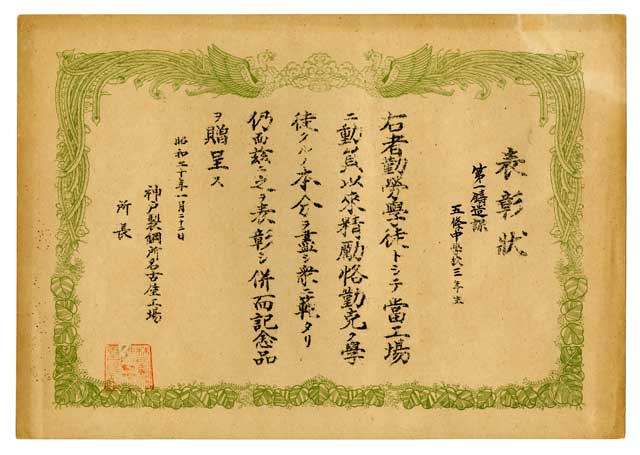 表彰狀
第一鑄造課
五條中學校三年生
右者勤勞學徒トシテ當工場
ニ動員以來精勵恪勤克ク學
徒タルノ本分ヲ盡シ衆ニ範タリ
仍而玆ニ之ヲ表彰シ併而記念品
ヲ贈呈ス
昭和二十年八月二十二日
神戸製鋼所名古屋工場
所長